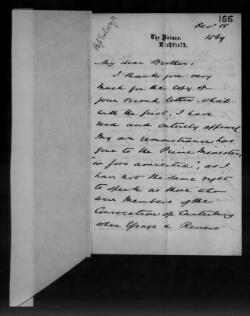 155
Dec. 15
The Palace,
Lichfield.
1869
My dear Brother,
I thank you very
much for the copy of
your second letter, which
with the first, I have
read and entirely approve.
My own remonstrance has
gone to the Prime Minister
"in foro amicitiae", as I
have not the same right
to speak as those who
were Members of the
Convocation of Canterbury
when Essays & Reviews